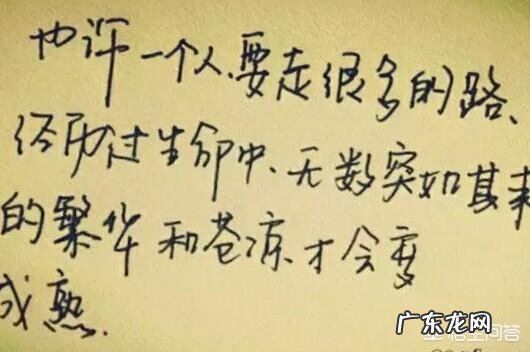 也许一个人、要走很多的路、
经历过生命中、无数突如其来
的繁华和苍凉、才会变
成熟.
悟空问答
广东龙网